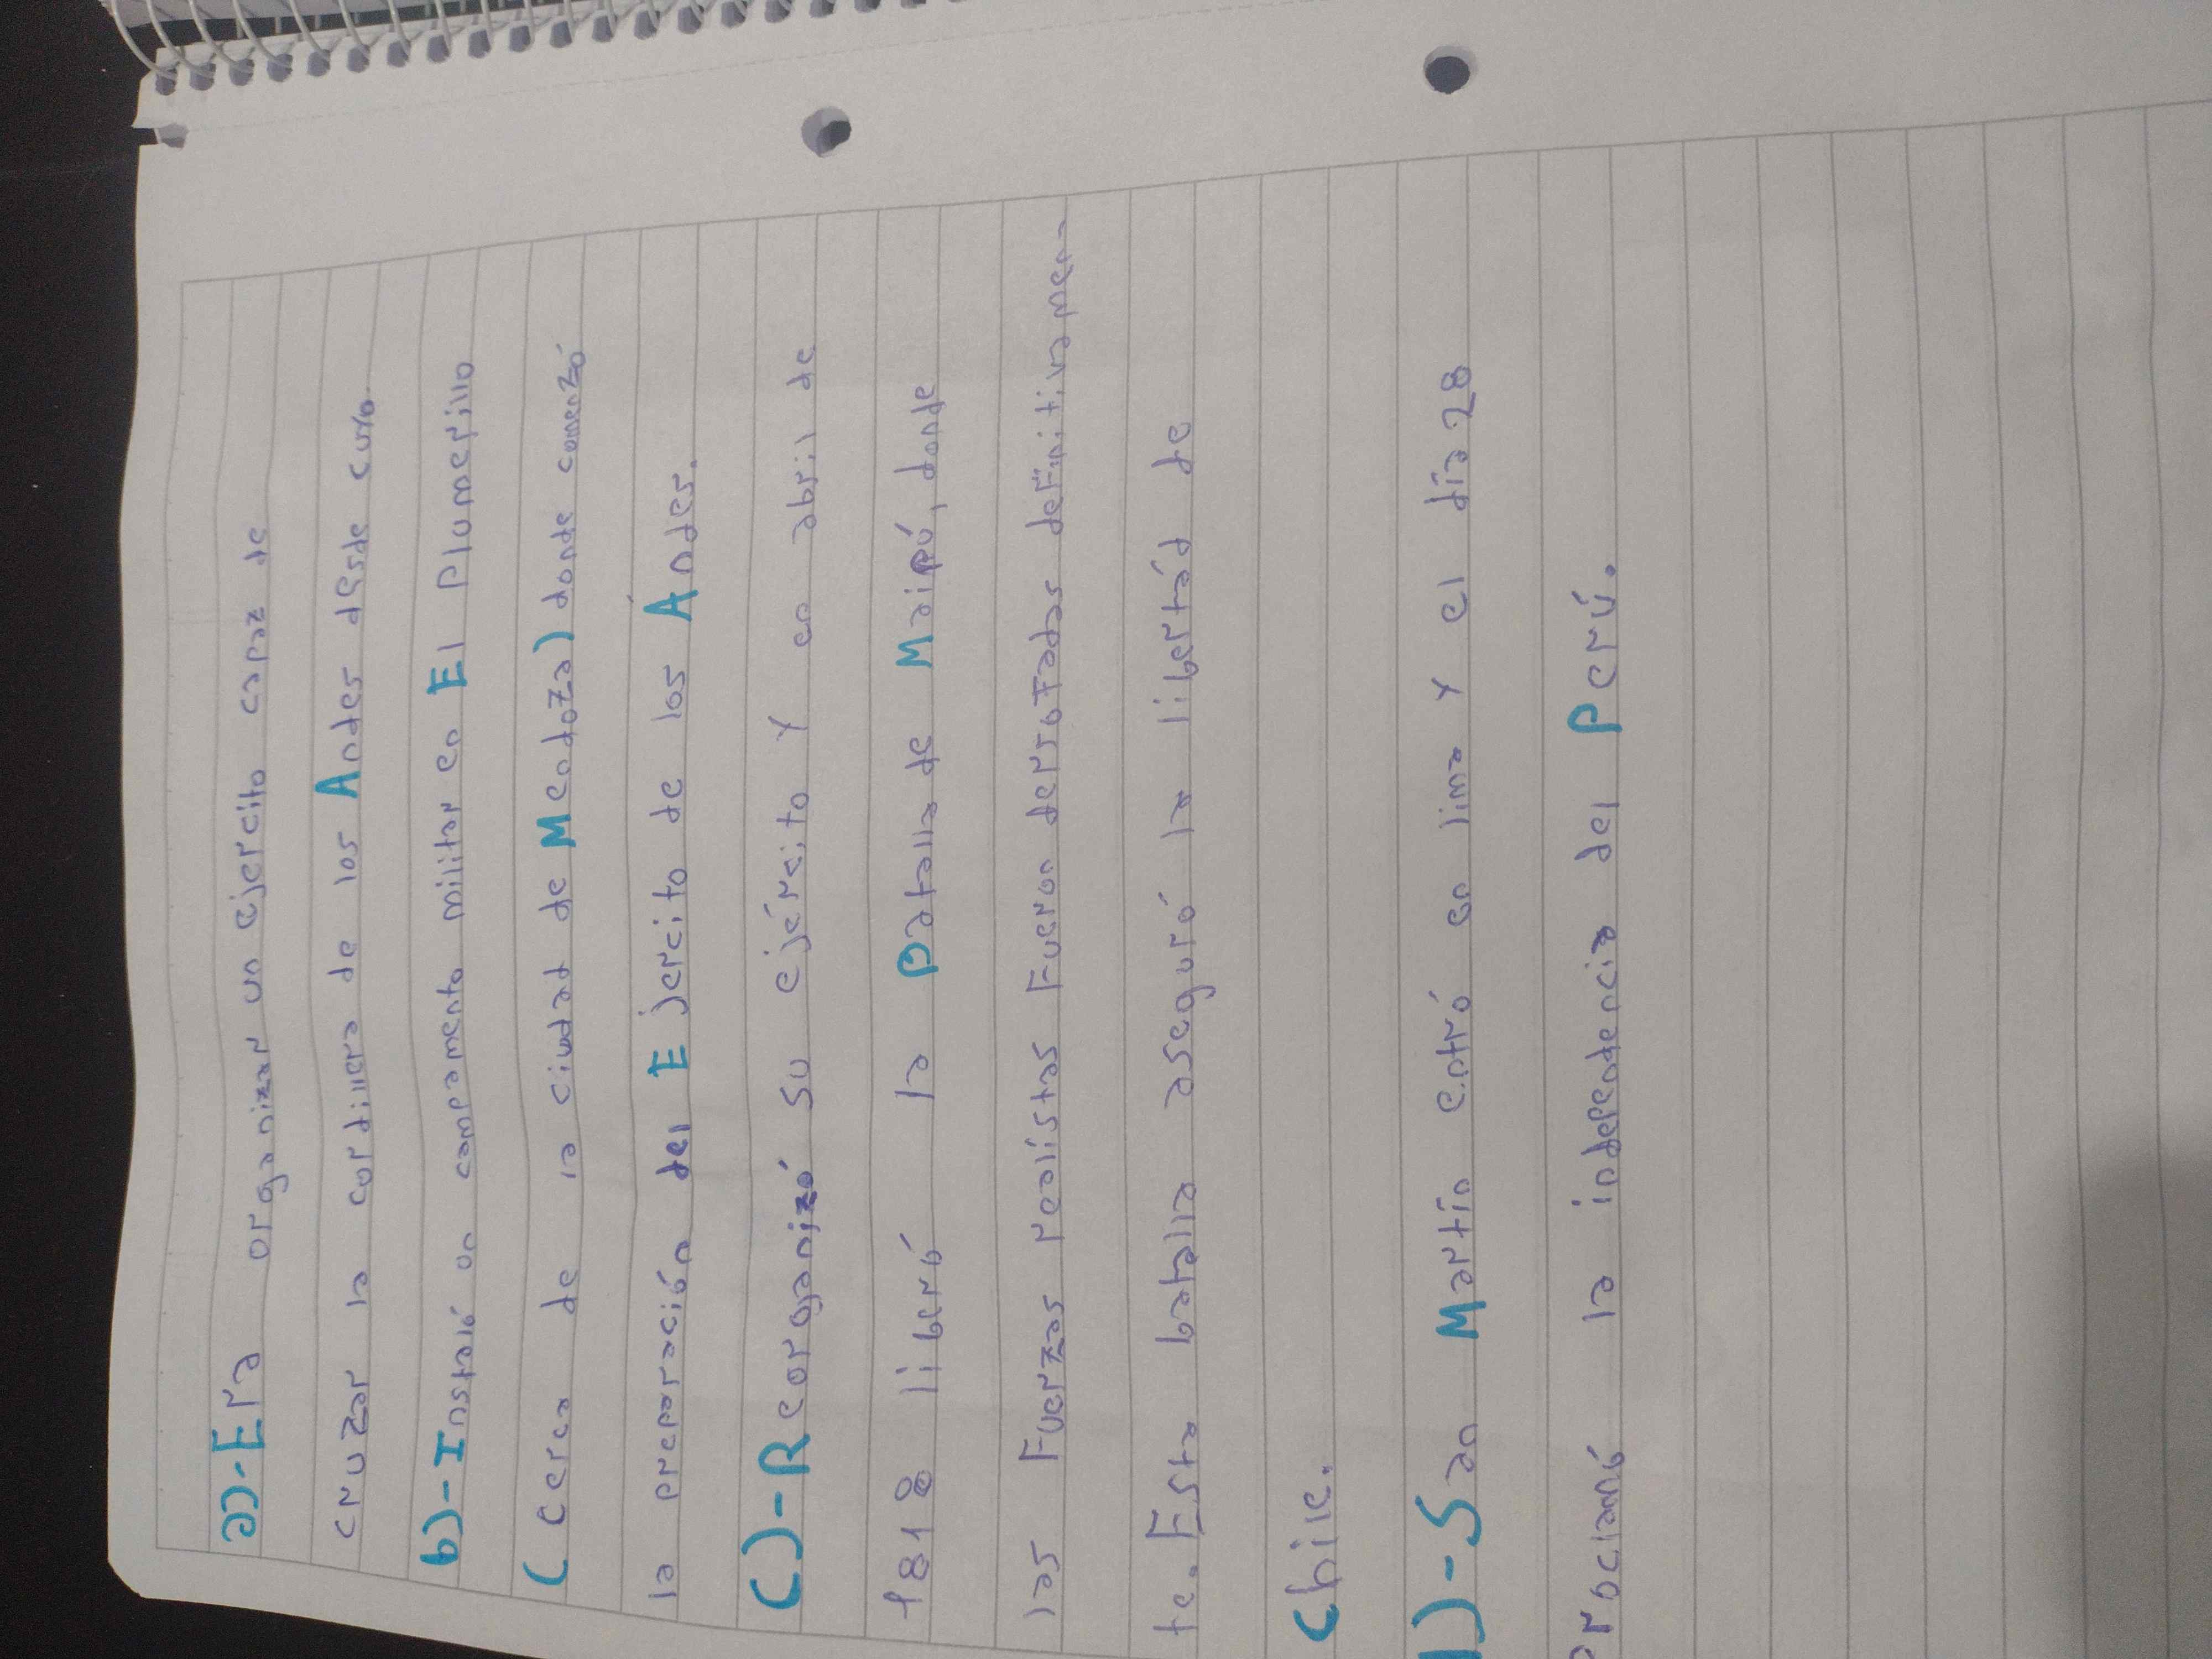 a)-Era organizar un ejercito capaz de
cruzar la cordillera de los Andes desde cuyo.
b)-Instaló un campamento militar en El plumepillo
(cerca de la ciudad de Mendoza) donde comenzó
la preparación del Ejercito de los Ándes.
C)-Reorganizó su ejército y en abril de
1818 libró la batalla de Maipú, donde
las Fuerzas realistas Fueron derrotadas definitivamen-
te. Esta batalla aseguró la libertad de
Chile.
)-San Martín entró en lima y el día 28
Proclamó la independencia del Perú.